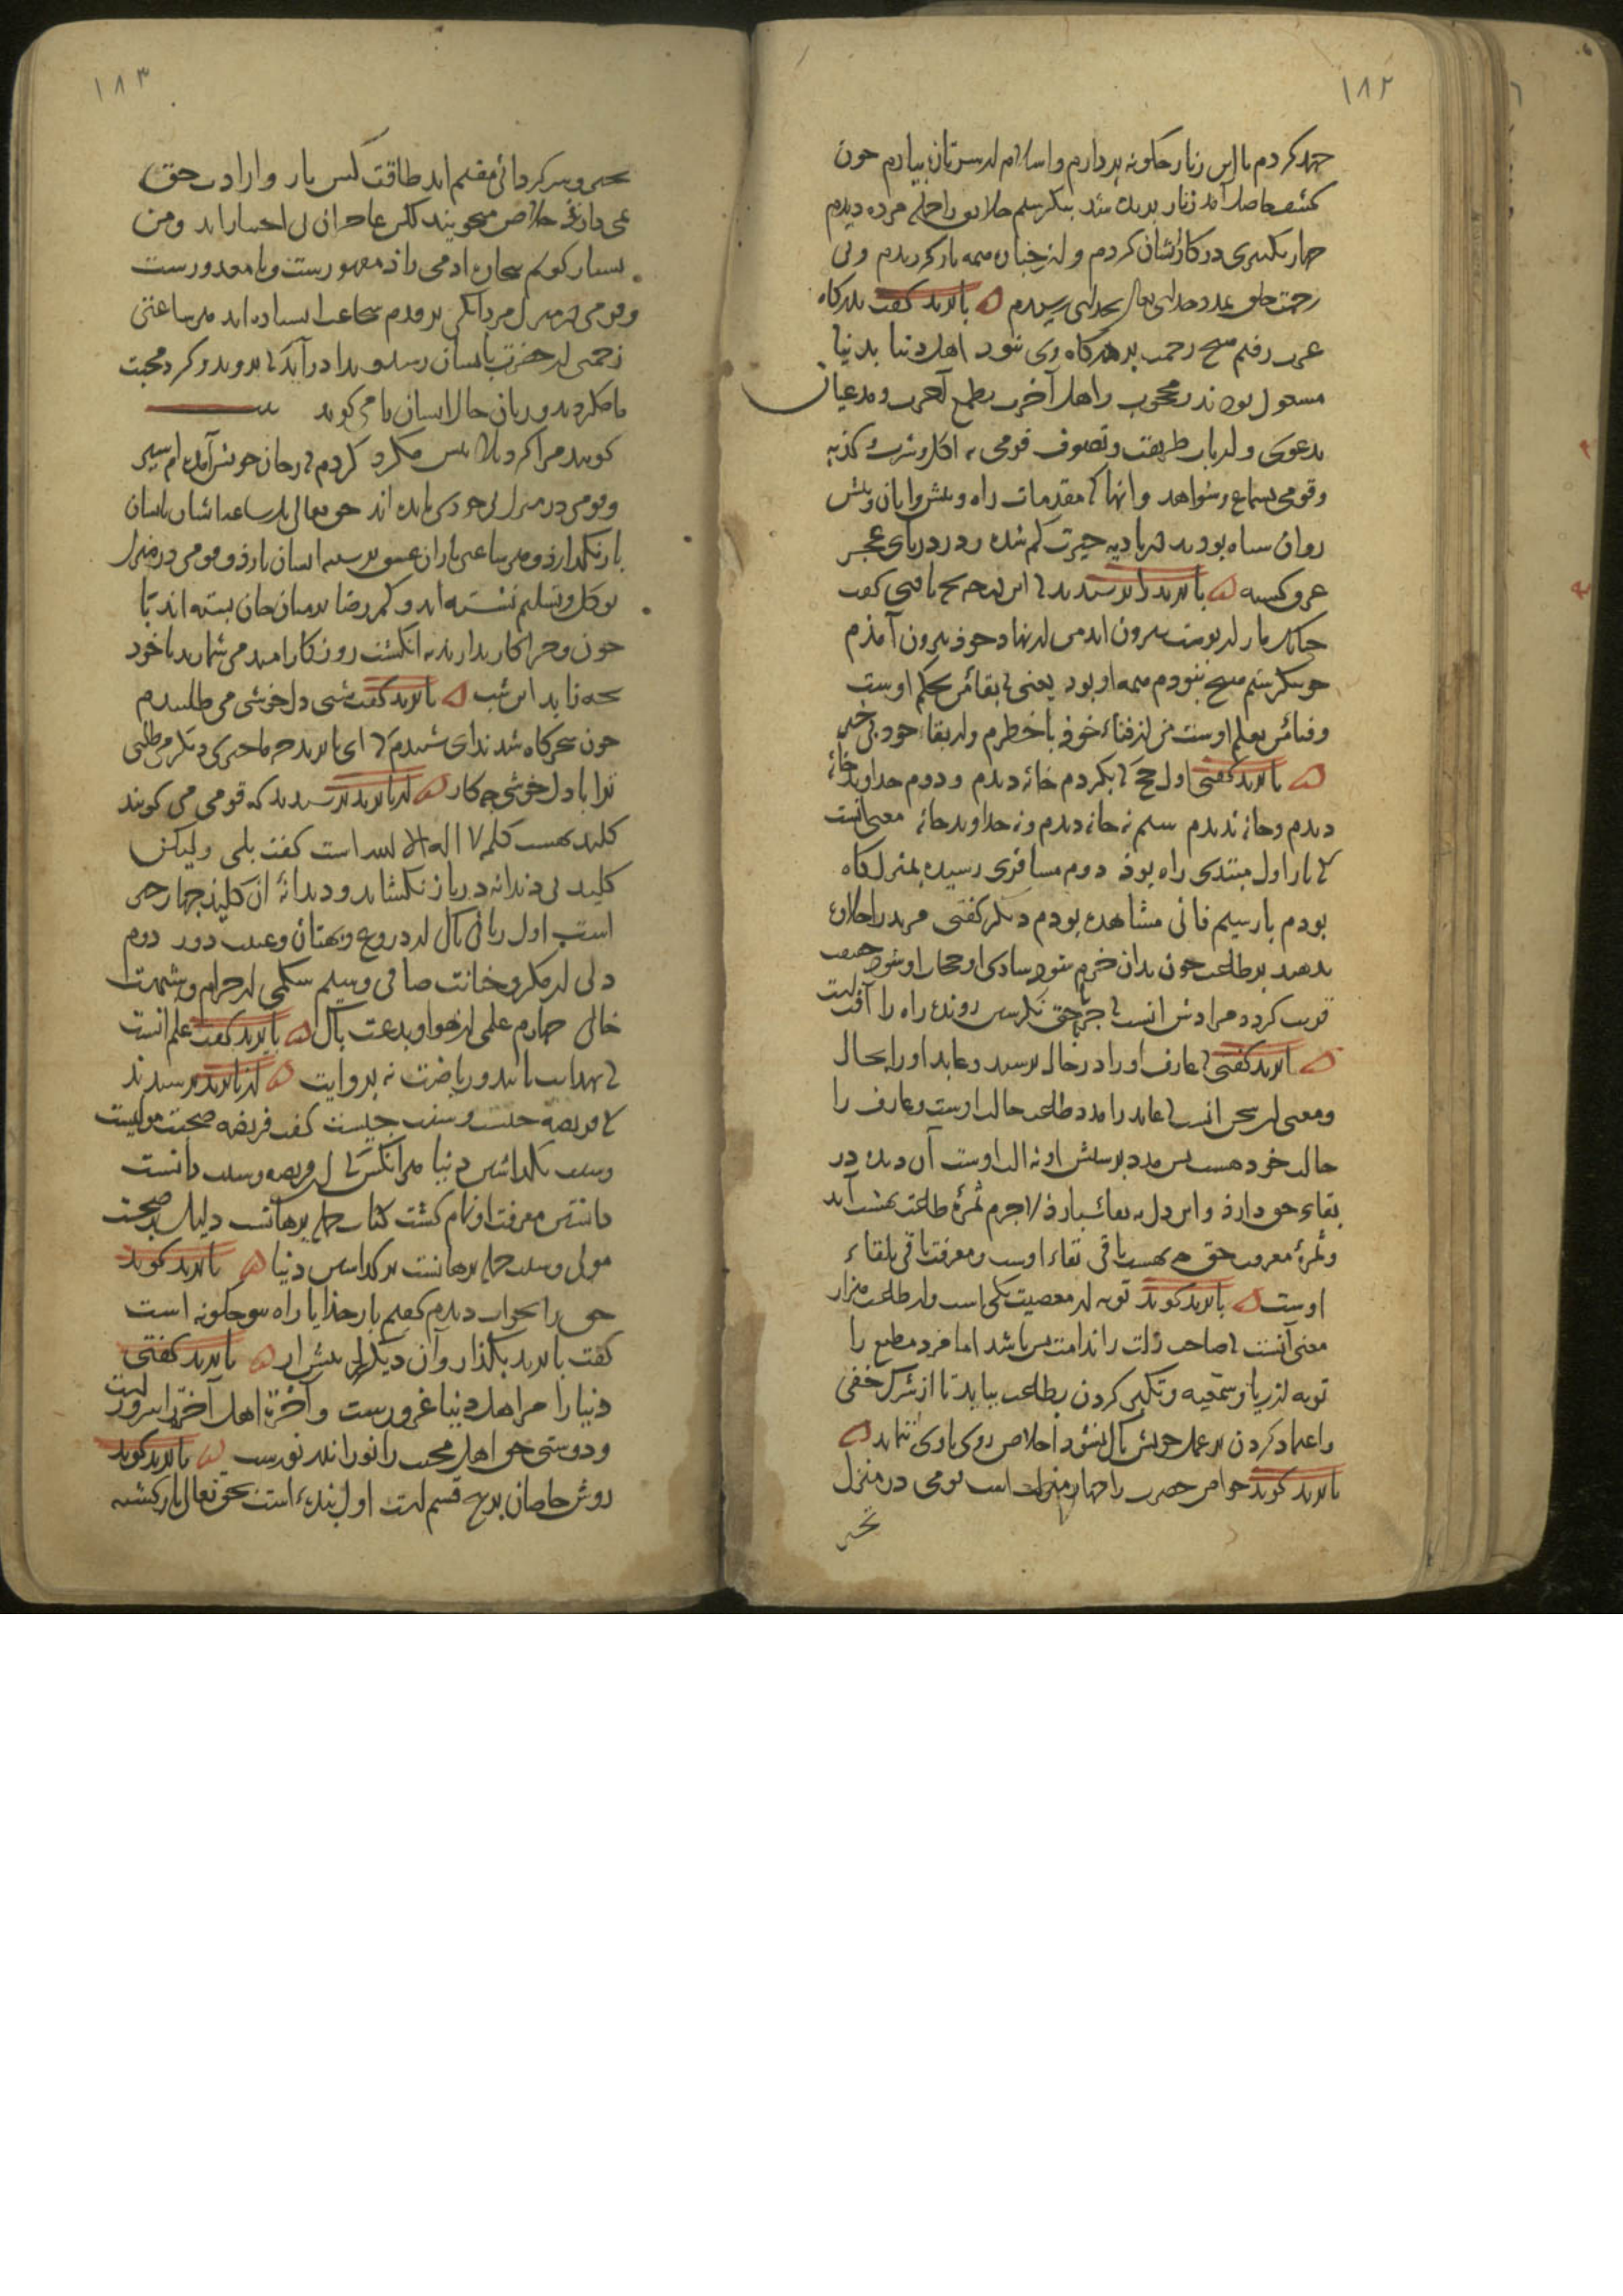 ١٨٢
جهد کردم تا این زنار چکونه بردارم و اسلام از سرتان بیارم چون
کشف حاصل آمد زنار بریده شد بنکرستم خلایق را جمله مرده دیدم
چهار تکبیری در کار ایشان کردم و از جنازه همه باز کردیدم و بی
زحمت خلق بمدد خدای تعالی بخدای رسیدم بایزید کفت بدرکاه
عزت رفتم هیچ زحمت بر درکاه وی نبود اهل دنیا بدنیا
مشغول بودند و محجوب و اهل آخرت بطمع آخرت و مدعیان
بدعوی و ارباب طریقت و تصوف قومی به اکل و شرب و کدیه
و قومی بسماع و شواهد و آنها که مقدمان راه و پیش روان
روان سپاه بودند در بادیه حیرت کم شده و در دریای عجز
غرق کشته بایزید را پرسیدند که این درجه بچه یافتی کفت
چنانک مار از پوست بیرون آید من از نهاد خود بیرون آمدم
چون بنکرستم هیچ نبودم همه او بود یعنی که بقائش بحکم اوست
و فنائش بعلم اوست من از فناء خود با خطرم و از بقاء خود بی خبر
بایزید کفتی اول حج که بکردم خانه دیدم و دوم خداوند خانه
دیدم و خانه ندیدم سیم نه خانه دیدم و نه خداوند خانه معنی آنست
که بار اول مبتدی راه بود دوم مسافری رسیده بمنزل کاه
بودم بار سیم فانی مشاهده بودم دیکر کفتی مرید را حلاوت
بدهند بر طاعت چون بدان خرم شود شادی او حجاب او شود
قربت کردد مرادش آنست که جز بحق نکرستن رونده راه را آفت است
بایزید کفتی که عارف او را در حال پرستد و عابد او را بحال
و معنی این سخن آنست که عابد را مدد طاعت حال اوست و عارف را
حال خود هست پس مدد پرستش او نه حال اوست آن دیده در
بقاء حق دارد و این دل به بقائش دارد لاجرم ثمره طاعت بهشت آمد
و ثمره معرفت حق بهشت باقی بقاء اوست و معرفت باقی بلقاء
اوست بایزید کوید توبه از معصیت یکی است و از طاعت هزار
معنی آنست که صاحب زلت را ندامت بس باشد اما مرد مطیع را
توبه از ریا و سمعه و تکبر کردن بطاعت بباید تا از شرک خفی
و اعتماد کردن بر عمل خویش پاک نشود اخلاص روی باوی ننماید
بایزید کوید خواص حضرت را چهار منزلت است قومی در منزل
تحیر
١٨٣
تحیر و سر کردانی مقیم اند طاقت کس بار و ارادت حق
نمی دارند خلاص میجویند لکن عاجزان بی اختیاراند و من
بسیار کویم بیچاره آدمی زاد مقهورست و نامعذورست
و قومی در منزل مردانکی بر قدم شجاعت ایستاده اند هر ساعتی
زخمی از حضرت بایشان رسد و ندا درآید که بروید و کرد محبت
ما مکردید و زبان حال ایشان می کوید بیت
کویند مرا کرد بلا بیش مکرد کردم که ز جان خویش آمده ام سیر
و قومی در منزل بی خودی مانده اند حق تعالی هر ساعت ایشان بایشان
باز نکذارد و هر ساعتی باران عشق بر سر ایشان بارد و قومی در منزل
توکل و تسلیم نشسته اند و کمر رضا بر میان جان بسته اند با
چون و چرا کار ندارند به انکشت روزکار امید می شمارند تا خود
چه زاید این شب بایزید کفت شبی دل خوشی می طلبیدم
چون سحرکاه شد ندای شنیدم که ای بایزید جز ما چیزی دیکر می طلبی
ترا با دل خوشی چه کار از بایزید پرسیدند که قومی می کویند
کلید بهشت کلمه لا اله الا الله است کفت بلی ولیکن
کلید بی دندانه در باز نکشاید و دندانه آن کلید چهار چیز
است اول زبانی پاک از دروغ و بهتان و غیبت دور دوم
دلی از مکر و خیانت صافی و سیم شکمی از حرام و شبهت
خالی چهارم عملی از هوا و بدعت پاک بایزید کفت علم آنست
که بهدایت باشد و ریاضت نه بروایت از بایزید پرسیدند
که فریضه چیست و سنت چیست کفت فریضه صحبت مولیست
و سنت بکذاشتن دنیا هر آنکس که این فریضه و سنت دانست
دانش معرفت او تمام کشت کتاب جمله برهانست دلیل بر صحبت
مولی و سنت جمله برهانست بر کذاشتن دنیا بایزید کوید
حق را بخواب دیدم کفتم بار خدایا راه بتو چکونه است
کفت بایزید بکذار و آن دیکر پیش آر بایزید کفتی
دنیا را مر اهل دنیا غرورست و آخرت اهل آخرت را سرورست
و دوستی حق اهل محبت را نور اندر نورست بایزید کوید
روش خاصان بر پنج قسم است اول بنده است بحق تعالی باز کشته